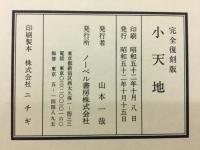 完全復刻版
小天地
印刷 昭和五十二年十月八日
発行 昭和五十二年十月十五日
発行者 山本一哉
発行所 ノーベル書房株式会社
印刷製本 株式会社ニチギ